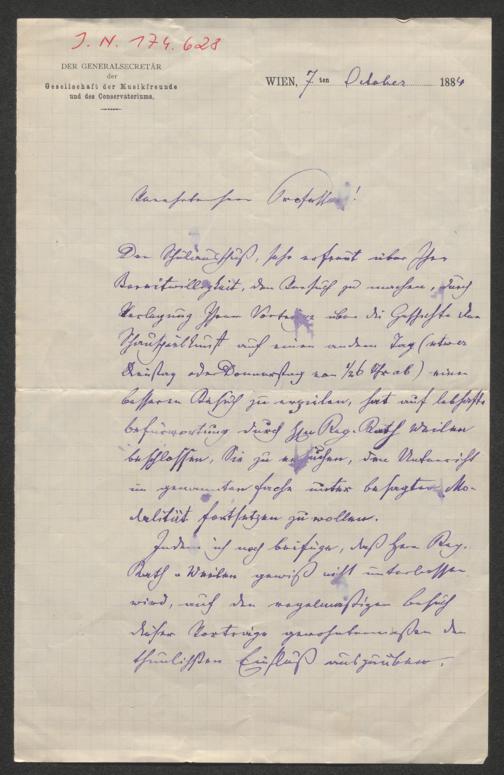 J. N. 174.628
DER GENERALSECRETÄR
der
Gesellschaft der Musikfreunde
und des Conservatoriums.
WIEN, 7 ten October 1884
Verehrter Herr Professor!
Der Schulausschuß, sehr erfreut über Ihre
Bereitwilligkeit, den Versuch zu machen, durch
Verlegung Ihrer Vorträge über die Geschichte der
Schauspielkunst auf einen andern Tag (etwa
Dienstag oder Donnerstag von 1/26 Uhr ab) einen
besseren Besuch zu erzielen, hat auf lebhafte
Befürwortung durch Hrn Reg. Rath Weilen
beschlossen, Sie zu ersuchen, den Unterricht
im genannten Fache unter besagter Mo-
dalität fortsetzen zu wollen.
Indem ich noch beifüge, daß Herr Reg.
Rath v Weilen gewiß nicht unterlassen
wird, auf den regelmäßigen Besuch
dieser Vorträge den
thunlichsten Einfluß auszuüben,